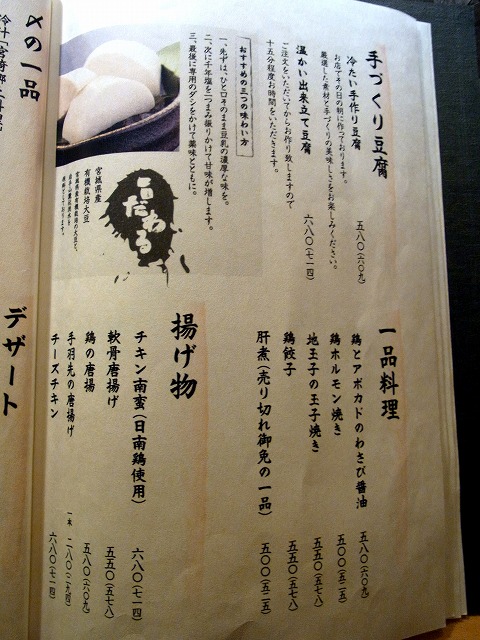 手づくり豆腐
冷たい手作り豆腐
お店でその日の朝に作っております。
厳選した素材と手づくりの美味しさをお楽しみください。
五八〇(六〇九)
温かい出来立て豆腐
ご注文をいただいてからお作り致しますので
十五分程度お時間をいただきます。
六八〇(七一四)
おすすめの三つの味わい方
一、先ずは、ひと口そのまま豆乳の濃厚な味を。
二、次に千年塩を二つまみ振りかけて甘味が増します。
三、最後に専用のダシをかけて薬味とともに。
こだわる
宮城県産
有機栽培大豆
宮城県産有機栽培の大豆と、
一品料理
鶏とアボカドのわさび醤油
五八〇(六〇九)
鶏ホルモン焼き
五〇〇(五二五)
地玉子の玉子焼き
五五〇(五七八)
鶏餃子
五五〇(五七八)
肝煮(売り切れ御免の一品)
五〇〇(五二五)
揚げ物
チキン南蛮(日南鶏使用)
六八〇(七一四)
軟骨唐揚げ
五五〇(五七八)
鶏の唐揚
五八〇(六〇九)
手羽先の唐揚げ
一本 二八〇(二九四)
チーズチキン
六八〇(七一四)
〆の一品
デザート